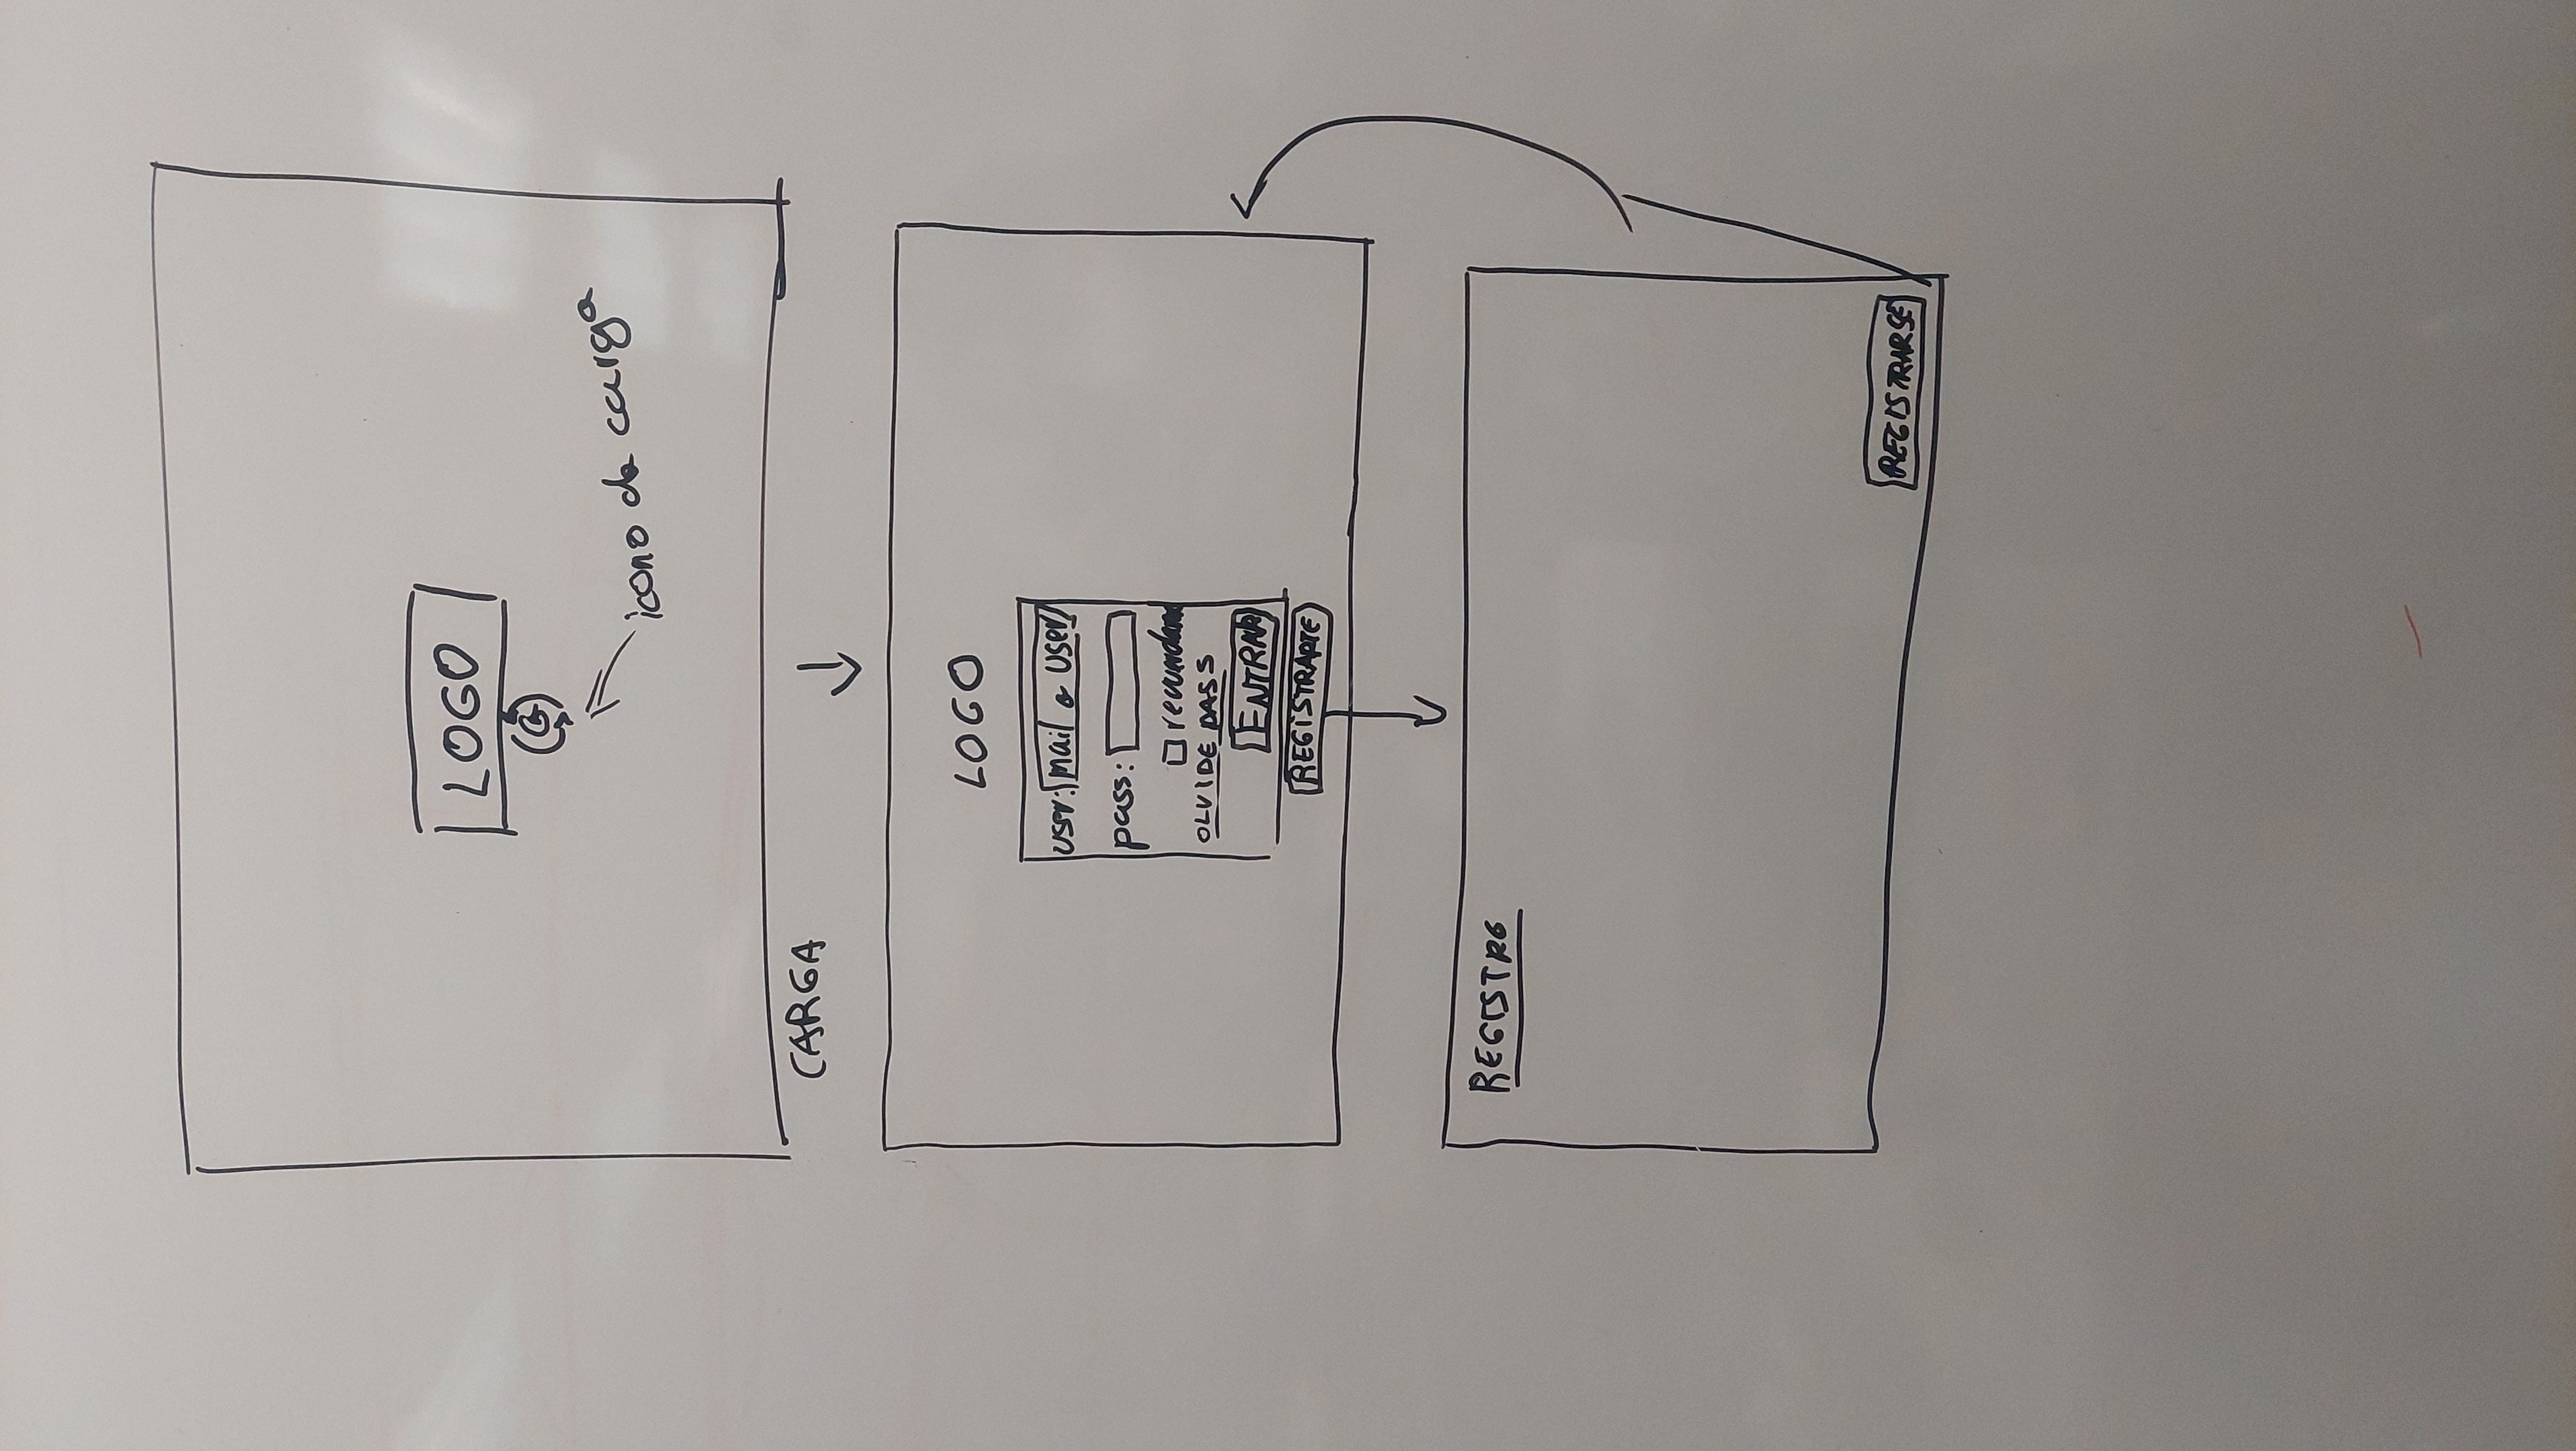 LOGO
icono de carga
CARGA
LOGO
user: mail o user
pass:
OLVIDE PASS
ENTRAR
REGISTRARTE
REGISTRO
REGISTRARSE